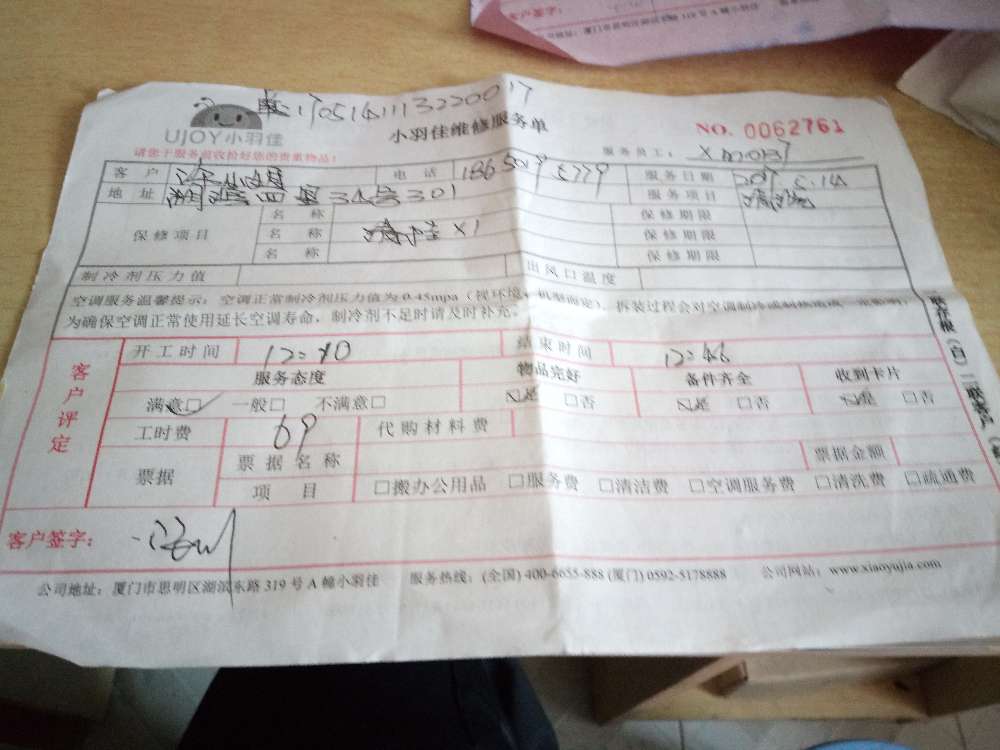 客户签字:
公司地址:厦门市思明区湖滨东路319号A幢小羽佳
单:1705141113220017
UJOY小羽佳
小羽佳维修服务单
NO. 0062761
请您于服务前收拾好您的贵重物品!
服务员工:
客 户
电 话
服务日期
地 址 34号301
服务项目
保修项目
名 称
保修期限
名 称 X1
保修期限
名 称
保修期限
制冷剂压力值
出风口温度
空调服务温馨提示:空调正常制冷剂压力值为0.45mpa(视环境、机型而定),拆装过程会对空调制冷
为确保空调正常使用延长空调寿命,制冷剂不足时请及时补充。
客户评定
开工时间 12=40
结束时间 12=46
服务态度 物品完好 备件齐全 收到卡片
满意□ 一般□ 不满意□ □是 □否 □是 □否 □是 □否
工时费 69 代购材料费
票据 票据名称 票据金额
项 目 □搬办公用品 □服务费 □清洁费 □空调服务费 □清洗费 □疏通费
客户签字:
公司地址:厦门市思明区湖滨东路319号A幢小羽佳 服务热线:(全国)400-6655-888 (厦门)0592-5178888 公司网站:www.xiaoyujia.com
一联存根(白)二联客户